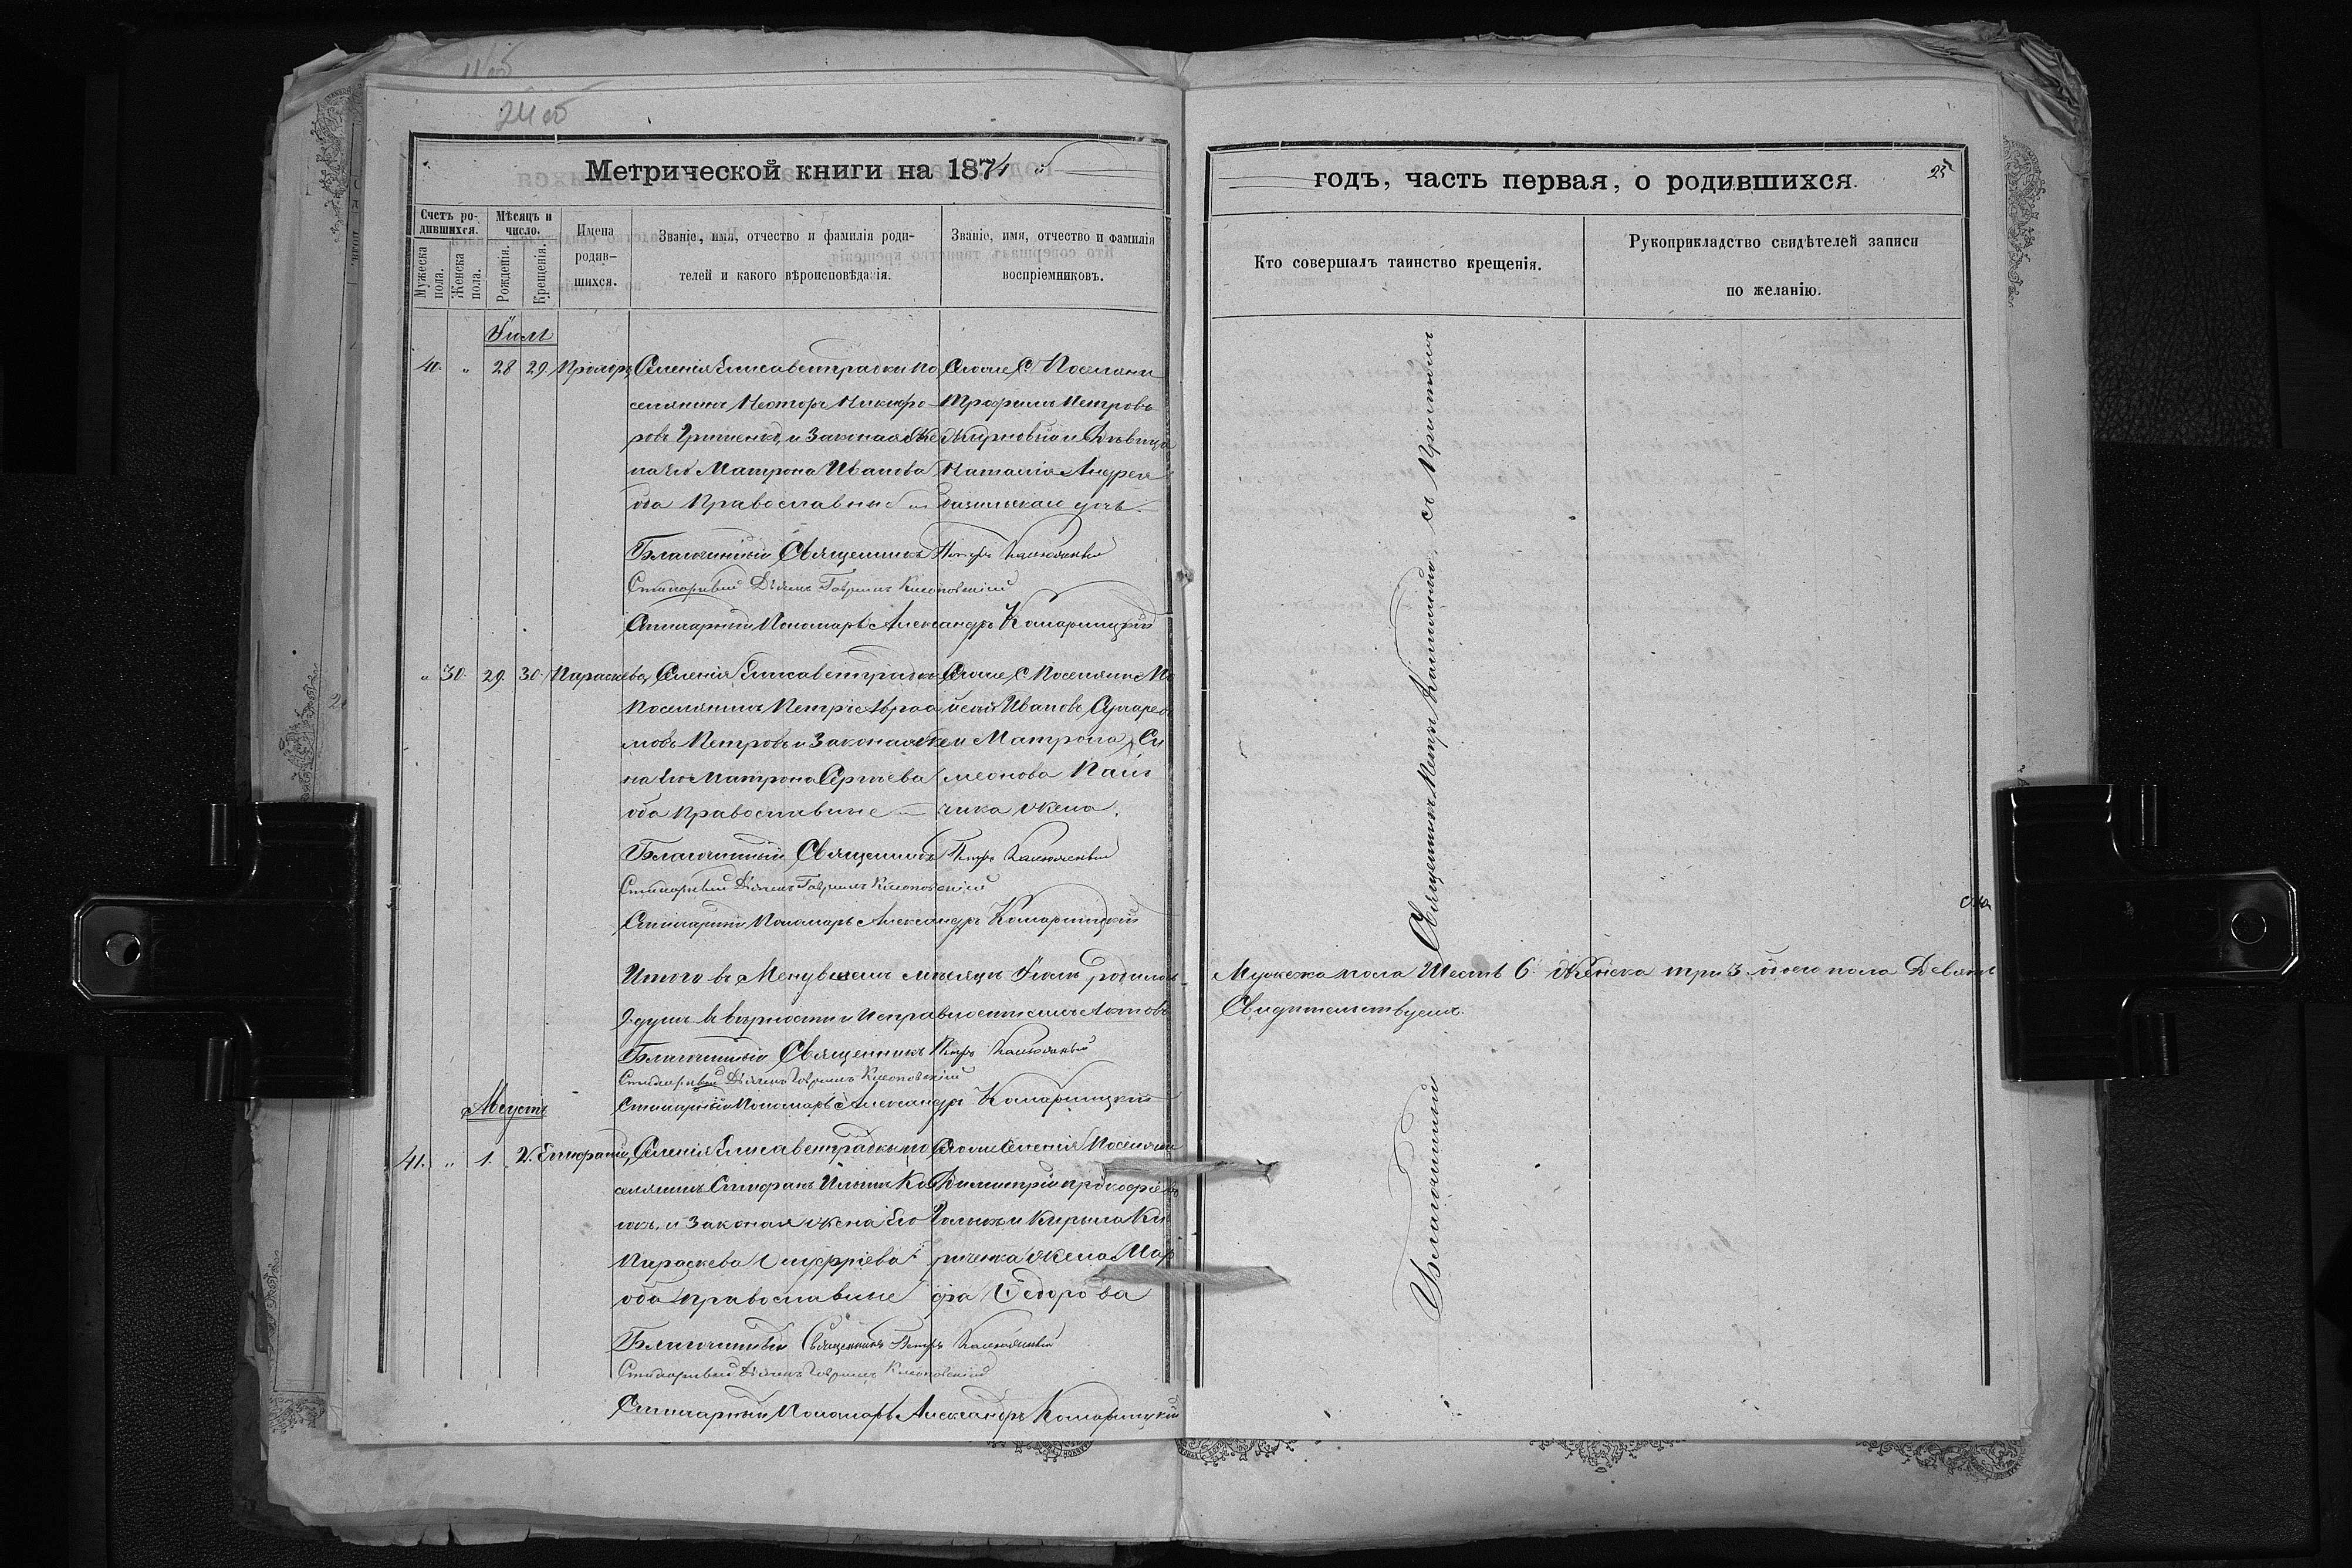 24 об
Метрической книги на 1874
Счетъ родившихся.
Мужеска пола.
Женска пола.
Мѣсяцъ и число.
Рожденія.
Крещенія.
Имена родившихся.
Званіе, имя, отчество и фамилія роди-
телей и какого вѣроисповѣданія.
Званіе, имя, отчество и фамилія
воспріемниковъ.
Іюль
40. " 28 29 Прохоръ
Селенія Елисаветградки По
селянинъ Несторъ Никифо
ровъ Гриценко, и Законая Же
на Его Матрона Иванова
оба Православные
Тогоже С. Поселяни
Трофимъ Петровъ
и Дѣвица
Наталія Андрея
дочь
Благочинный Священникъ Петръ
Стихарный Дьячекъ Гавріилъ Клеопов
Стихарный Пономарь Александръ Комарницкій
" 30. 29. 30. Параскева,
Селенія Елисаветградки
Поселянинъ Петръ Авраа
мовъ Петровъ и Законая Же
на Его Матрона Сергѣева
оба православные
Тогоже С. Поселянинъ Мо
исей Ивановъ Сухаревъ
и Матрона Си
меонова
жена.
Благочинный Священникъ Петръ
Стихарный Дьячекъ Гавріилъ Клеопов
Стихарный Пономарь Александръ Комарницкій
Итого въ Менувшемъ мѣсяцѣ Іюлѣ родилось
9 душъ въ вѣрности и Исправности сихъ Актовъ
Благочинный Священникъ Петръ
Стихарный Дьячекъ Гавріилъ Клеопов
Стихарный Пономарь Александръ Комарницкій
Августъ
41. " 1. 2. Епифаній,
Селенія Елисаветградки По
селянинъ Стефанъ Ильинъ Ко
и Законая жена Его
Параскева
оба православные
Тогоже Селенія Поселяни
Димитрій Прокофіевъ
и Кирила Ки
риченка жена Мар
фа Федорова
Благочинный Священникъ Петръ
Стихарный Дьячекъ Гавріилъ Клеопов
Стихарный Пономарь Александръ Комарницкій
годъ, часть первая, о родившихся.
25
Кто совершалъ таинство крещенія.
Рукоприкладство свидѣтелей записи
по желанію.
Благочинный
Священникъ Петръ съ Причтомъ
Мужеска пола Шесть 6. Женска три 3. обоего пола Девять
Свидѣтельствуемъ.